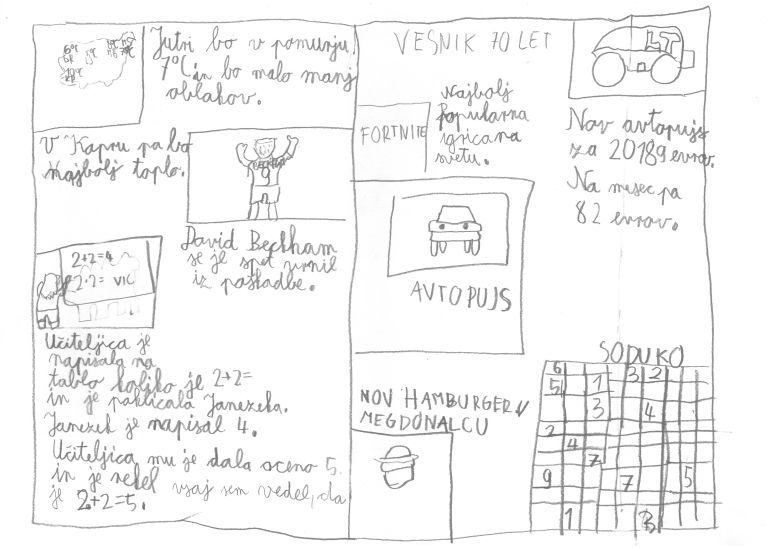 Jutri bo v pomurju
7°C in bo malo manj
oblakov.
V Kapru pa bo
najbolj toplo.
David Beckham
se je spet vrnil
iz poškodbe.
2+2=4
2·2= VIC
Učiteljica je
napisala na
tablo koliko je 2+2=
in je poklicala Janezeka.
Janezek je napisal 4.
Učiteljica mu je dala oceno 5.
in je rekel vsaj sem vedel, da
je 2+2=5.
VESNIK 70 LET
FORTNITE
Najbolj
popularna
igrica na
svetu.
Nov avtopujs
za 20189 evrov.
Na mesec pa
82 evrov.
AVTOPUJS
NOV HAMBURGER V
MEGDONALCU
SODUKO
6 3 2
5 1
3 4
2
4
7
9 7 5
1 3